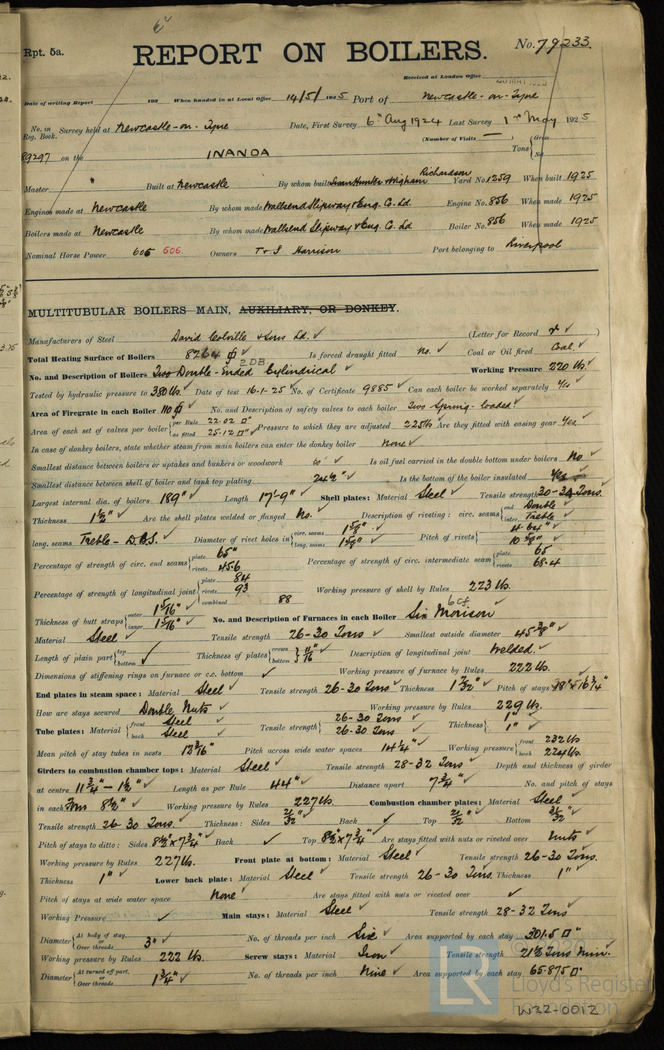 Rpt. 5a.
REPORT ON BOILERS.
No. 79233.
Received at London Office
Date of writing Report 192 When handed in at Local Office 14/5/1925 Port of Newcastle-on-Tyne
No. in Reg. Book. Survey held at Newcastle-on-Tyne Date, First Survey 6th Aug 1924 Last Survey 1st May 1925
(Number of Visits —)
89297 on the INANDA Tons { Gross Net
Master " Built at Newcastle By whom built Swan Hunter & Wigham Richardson Yard No. 1259 When built 1925
Engines made at Newcastle By whom made Wallsend Slipway & Eng. Co. Ld. Engine No. 856 When made 1925
Boilers made at Newcastle By whom made Wallsend Slipway & Eng. Co. Ld Boiler No. 856 When made 1925
Nominal Horse Power 605 606. Owners T & J Harrison Port belonging to Liverpool
MULTITUBULAR BOILERS MAIN, AUXILIARY, OR DONKEY.
Manufacturers of Steel David Colville & Sons Ld. ✓ (Letter for Record ✓)
Total Heating Surface of Boilers 8264 ✓ Is forced draught fitted No. ✓ Coal or Oil fired Coal ✓
2 DB
No. and Description of Boilers Two Double-Ended Cylindrical ✓ Working Pressure 220 lbs. ✓
Tested by hydraulic pressure to 380 lbs. ✓ Date of test 16-1-25 ✓ No. of Certificate 9885 ✓ Can each boiler be worked separately Yes ✓
Area of Firegrate in each Boiler 110 ✓ No. and Description of safety valves to each boiler Two Spring-loaded ✓
Area of each set of valves per boiler { per Rule 22.02 □" as fitted 25.12 □" ✓ Pressure to which they are adjusted 225 lb ✓ Are they fitted with easing gear Yes. ✓
In case of donkey boilers, state whether steam from main boilers can enter the donkey boiler None ✓
Smallest distance between boilers or uptakes and bunkers or woodwork ✓ Is oil fuel carried in the double bottom under boilers No ✓
Smallest distance between shell of boiler and tank top plating 24½" ✓ Is the bottom of the boiler insulated Yes ✓
Largest internal dia. of boilers 189" ✓ Length 17'-9" ✓ Shell plates: Material Steel ✓ Tensile strength 30-34 Tons.
Thickness 1½" ✓ Are the shell plates welded or flanged No. ✓ Description of riveting: circ. seams { end Double inter. Treble
long. seams Treble - D.B.S. ✓ Diameter of rivet holes in { circ. seams 1⅝" ✓ long. seams 1⅝" ✓ Pitch of rivets { 4.64" ✓ 10⅝" ✓
Percentage of strength of circ. end seams { plate 65" rivets 45.6 Percentage of strength of circ. intermediate seam { plate 65 rivets 68.4
Percentage of strength of longitudinal joint { plate 84 rivets 93 combined 88 Working pressure of shell by Rules 223 lbs.
Thickness of butt straps { outer 1 5/16" ✓ inner 1 5/16" ✓ No. and Description of Furnaces in each Boiler Six Morison ✓
6 cf
Material Steel ✓ Tensile strength 26-30 Tons ✓ Smallest outside diameter 45⅜" ✓
Length of plain part { top bottom ✓ Thickness of plates { crown bottom } 11/16" ✓ Description of longitudinal joint Welded. ✓
Dimensions of stiffening rings on furnace or c.c. bottom ✓ Working pressure of furnace by Rules 222 lbs.
End plates in steam space: Material Steel ✓ Tensile strength 26-30 Tons ✓ Thickness 1 7/32" ✓ Pitch of stays 18" x 16¾" ✓
How are stays secured Double Nuts ✓ Working pressure by Rules 229 lbs. ✓
Tube plates: Material { front Steel back Steel ✓ Tensile strength { 26-30 Tons ✓ 26-30 Tons Thickness { 1" ✓ 1" ✓
Mean pitch of stay tubes in nests 12 3/16" ✓ Pitch across wide water spaces 14¼" ✓ Working pressure { front 232 lbs back 224 lbs. ✓
Girders to combustion chamber tops: Material Steel ✓ Tensile strength 28-32 Tons ✓ Depth and thickness of girder
at centre 11¾" - 1½" ✓ Length as per Rule 44" ✓ Distance apart 7¾" ✓ No. and pitch of stays
in each Four 8½" ✓ Working pressure by Rules 227 lbs. Combustion chamber plates: Material Steel ✓
Tensile strength 26-30 Tons. ✓ Thickness: Sides 21/32" ✓ Back ✓ Top 21/32" ✓ Bottom 26/32" ✓
Pitch of stays to ditto: Sides 8½" x 7¾" ✓ Back ✓ Top 8½" x 7¾" ✓ Are stays fitted with nuts or riveted over Nuts ✓
Working pressure by Rules 227 lbs. Front plate at bottom: Material Steel ✓ Tensile strength 26-30 Tons.
Thickness 1" ✓ Lower back plate: Material Steel ✓ Tensile strength 26-30 Tons. Thickness 1" ✓
Pitch of stays at wide water space None ✓ Are stays fitted with nuts or riveted over ✓
Working Pressure ✓ Main stays: Material Steel ✓ Tensile strength 28-32 Tons ✓
Diameter { At body of stay, or Over threads 3" ✓ No. of threads per inch Six ✓ Area supported by each stay 301.5 □" ✓
Working pressure by Rules 222 lbs. ✓ Screw stays: Material Iron ✓ Tensile strength 21½ Tons Min. ✓
Diameter { At turned off part, or Over threads 1¾" ✓ No. of threads per inch Nine ✓ Area supported by each stay 65.875 □" ✓
LR
© 2020
Lloyd's Register
Foundation
W22-0012